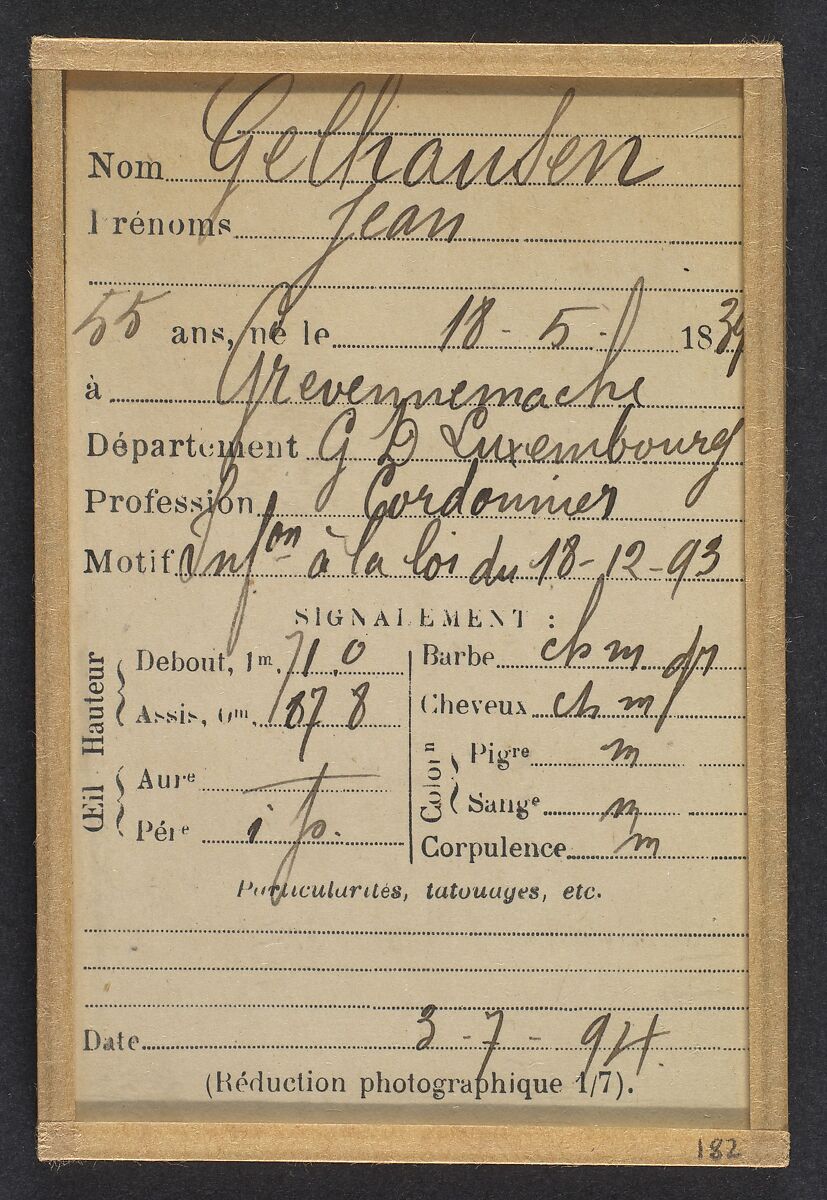 Nom Gelhausen
Prénoms Jean
55 ans, né le 18 - 5 - 1839
à Grevennemache
Département G D Luxembourg
Profession Cordonnier
Motif Infon à la loi du 18-12-93
SIGNALEMENT :
Hauteur
Debout, 1m. 71.0
Assis, 0m. 87 8
Œil
Aure
Pére i f.
Barbe ch m gr
Cheveux ch m
Colorn
Pigre m
Sange m
Corpulence m
Particularités, tatouages, etc.
Date 3 - 7 - 94.
(Réduction photographique 1/7).
182